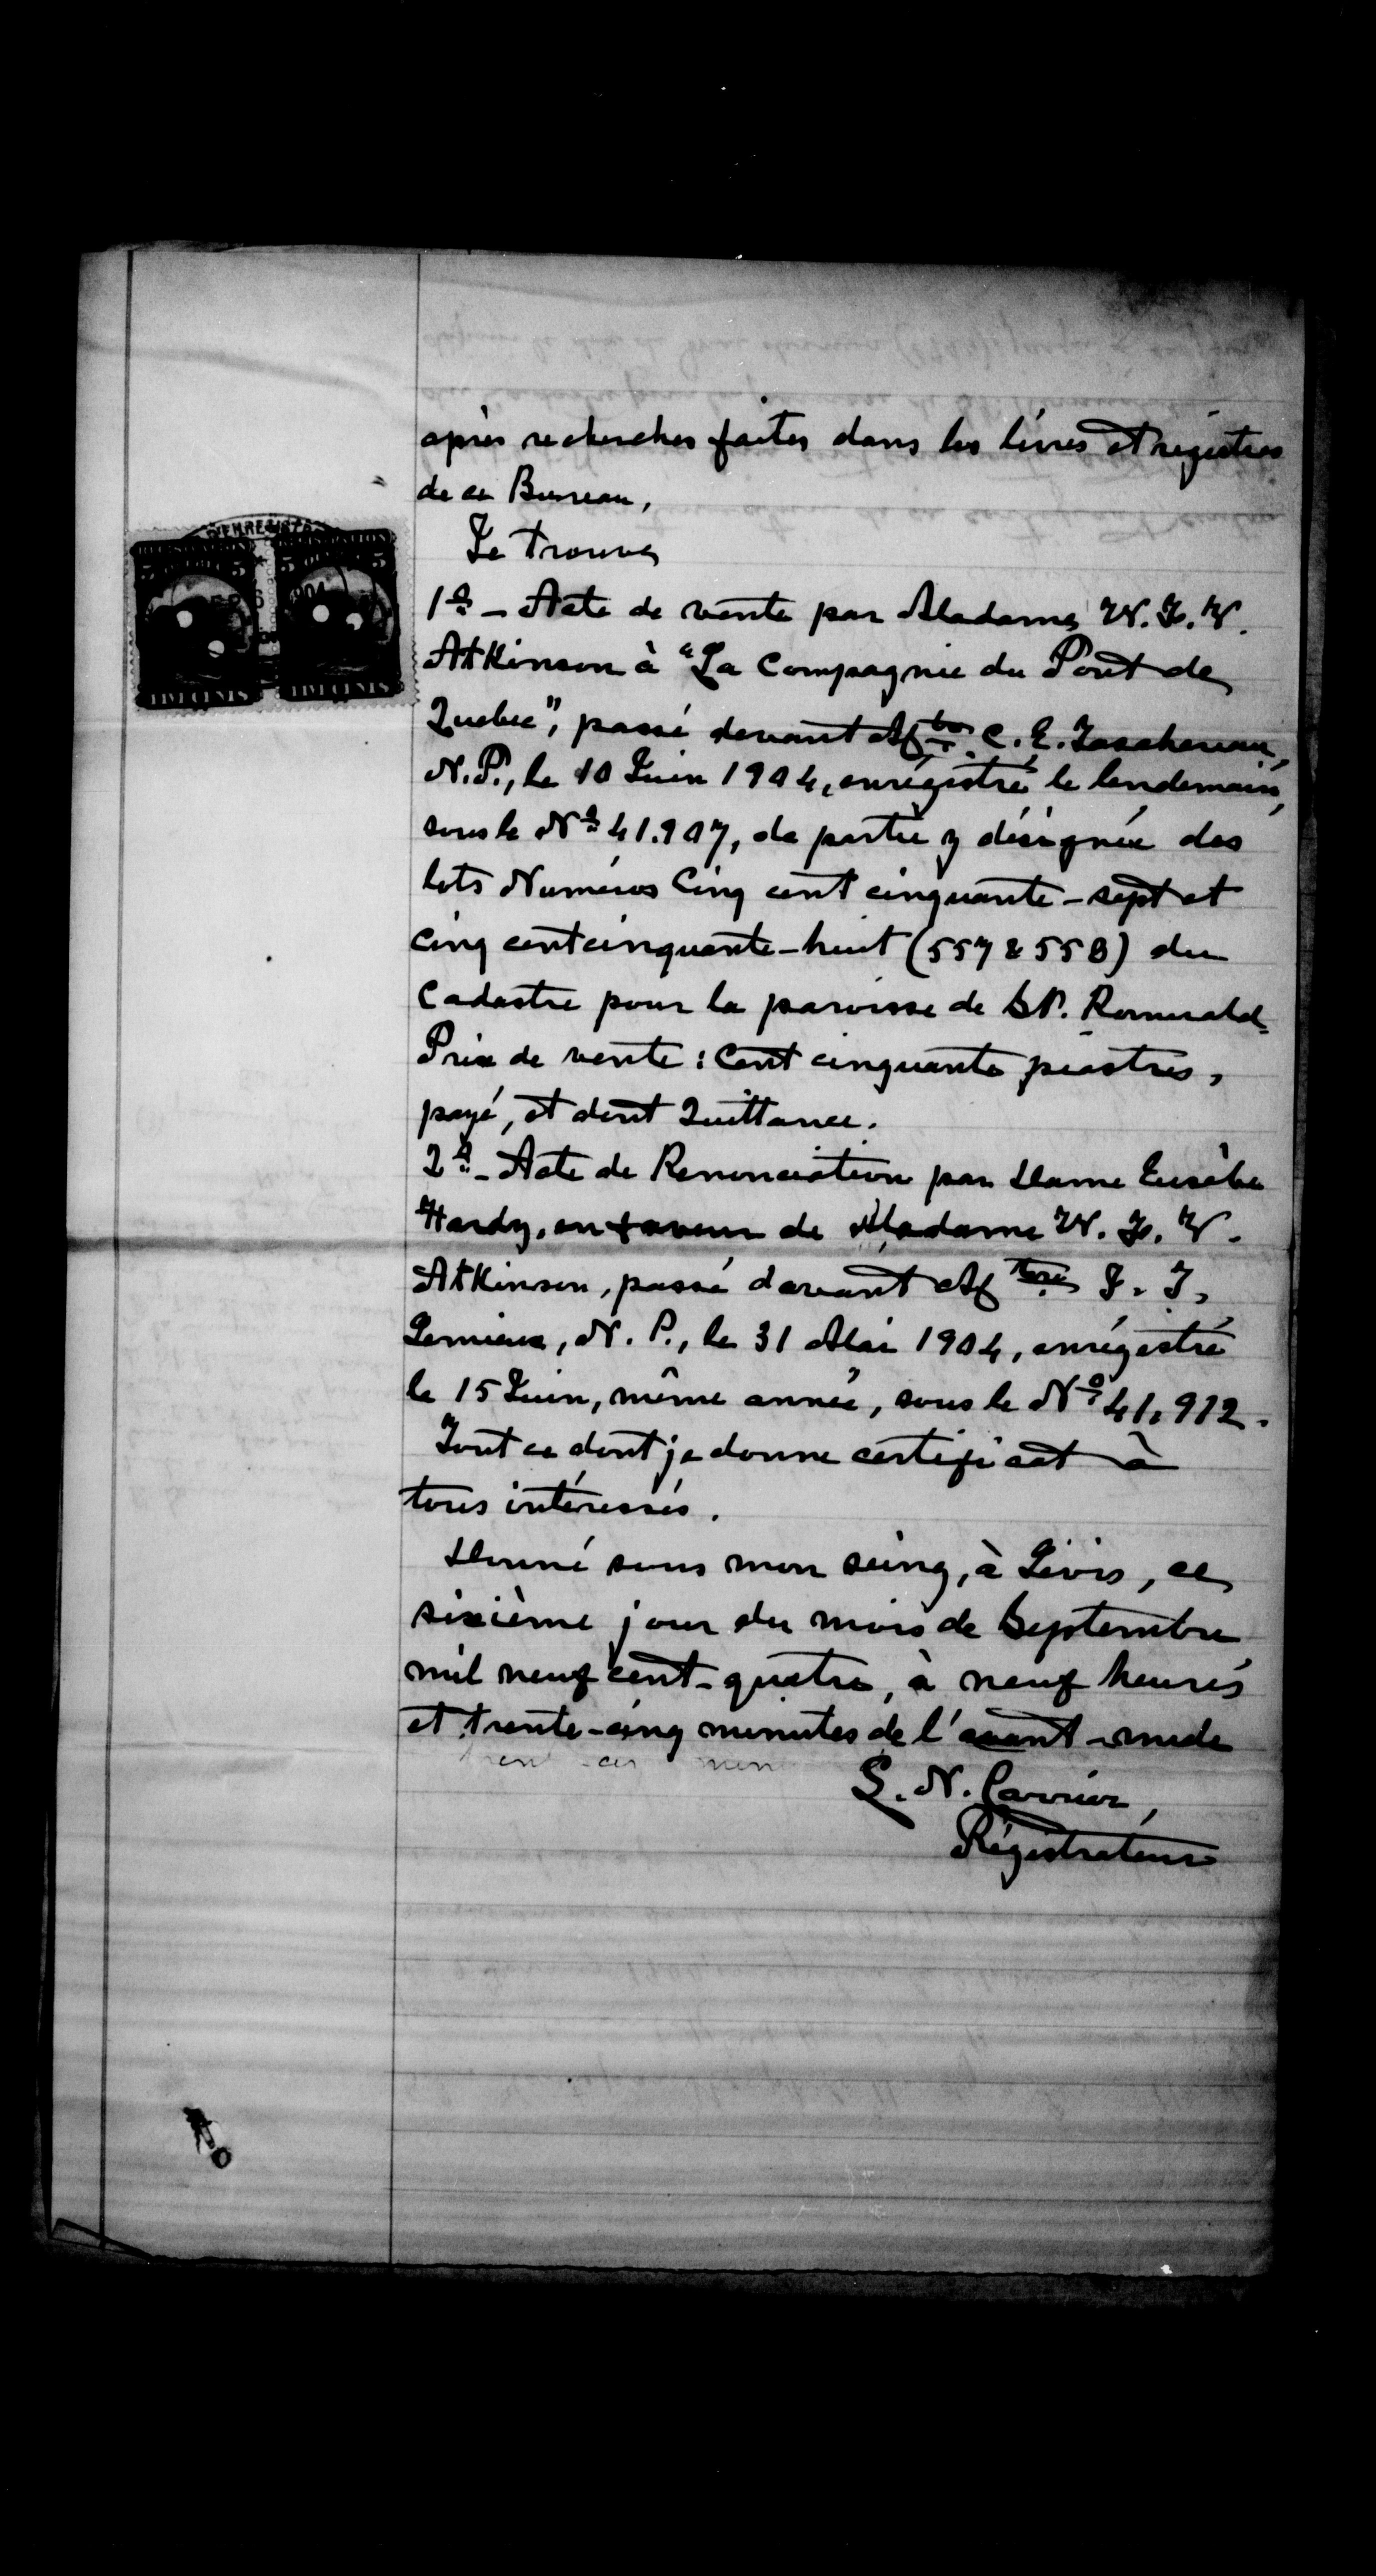 après recherches faites dans les livres et régistres
de ce Bureau,
Je trouve
1º - Acte de vente par Madame W. J. W.
Atkinson à "La Compagnie du Pont de
Quebec", passé devant Mtre C. E. Taschereau,
N.P., le 10 Juin 1904, enrégistré le lendemain,
sous le Nº 41.907, de partie y désignée des
lots Numéros Cinq cent cinquante-sept et
cinq cent cinquante-huit (557 & 558) du
Cadastre pour la paroisse de St. Romuald-
Prix de vente : Cent cinquante piastres,
payé, et dont Quittance.
2º - Acte de Renonciation par Dame Eusèbe
Hardy, en faveur de Madame W. J. W.
Atkinson, passé devant Mtre J. J.
Lemieux, N. P., le 31 Mai 1904, enrégistré
le 15 Juin, même année, sous le Nº 41,912.
Tout ce dont je donne certificat à
tous intéressés.
Donné sous mon seing, à Lévis, ce
sixième jour du mois de Septembre
mil neuf cent-quatre, à neuf heures
et trente-cinq minutes de l'avant-midi
L. N. Carrier,
Régistrateur
5 5 5
FIVE CENTS FIVE CENTS